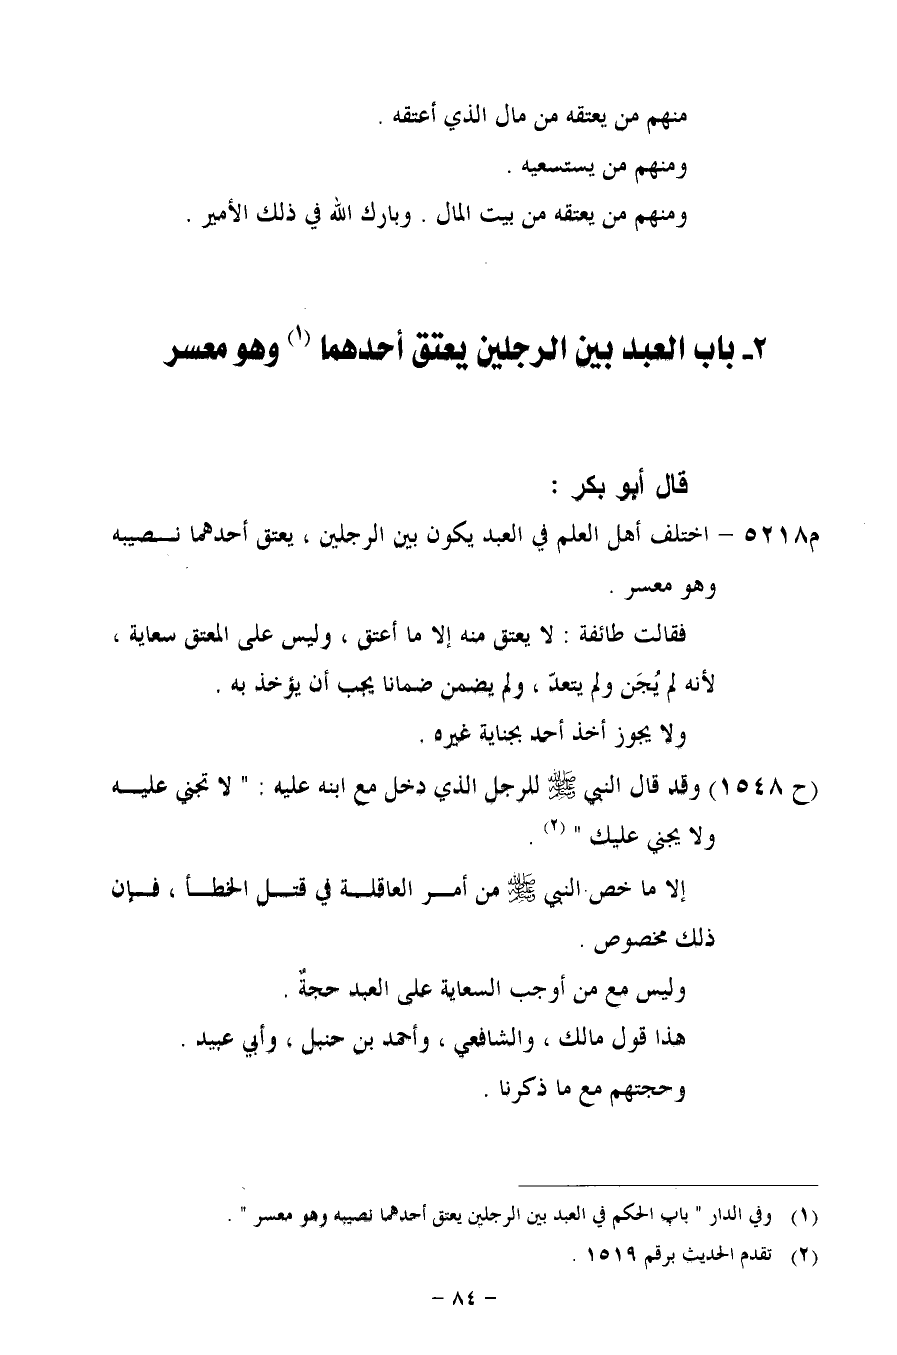 منهم من يعتقه من مال الذي أعتقه .
ومنهم من يستسعيه .
ومنهم من يعتقه من بيت المال . وبارك الله في ذلك الأمير .
٢ـ باب العبد بين الرجلين يعتق أحدهما (١) وهو معسر
قال أبو بكر :
م٥٢١٨ – اختلف أهل العلم في العبد يكون بين الرجلين ، يعتق أحدهما نـــصيبه
وهو معسر .
فقالت طائفة : لا يعتق منه إلا ما أعتق ، وليس على المعتق سعاية ،
لأنه لم يُجَن ولم يتعدّ ، ولم يضمن ضمانا يجب أن يؤخذ به .
ولا يجوز أخذ أحد بجناية غيره .
(ح ١٥٤٨) وقد قال النبي ﷺ للرجل الذي دخل مع ابنه عليه : " لا تجني عليـــه
ولا يجني عليك " (٢) .
إلا ما خص النبي ﷺ من أمـــر العاقلـــة في قتـــل الخطـــأ ، فـــإن
ذلك مخصوص .
وليس مع من أوجب السعاية على العبد حجةٌ .
هذا قول مالك ، والشافعي ، وأحمد بن حنبل ، وأبي عبيد .
وحجتهم مع ما ذكرنا .
(١) وفي الدار " باب الحكم في العبد بين الرجلين يعتق أحدهما نصيبه وهو معسر " .
(٢) تقدم الحديث برقم ١٥١٩ .
– ٨٤ –